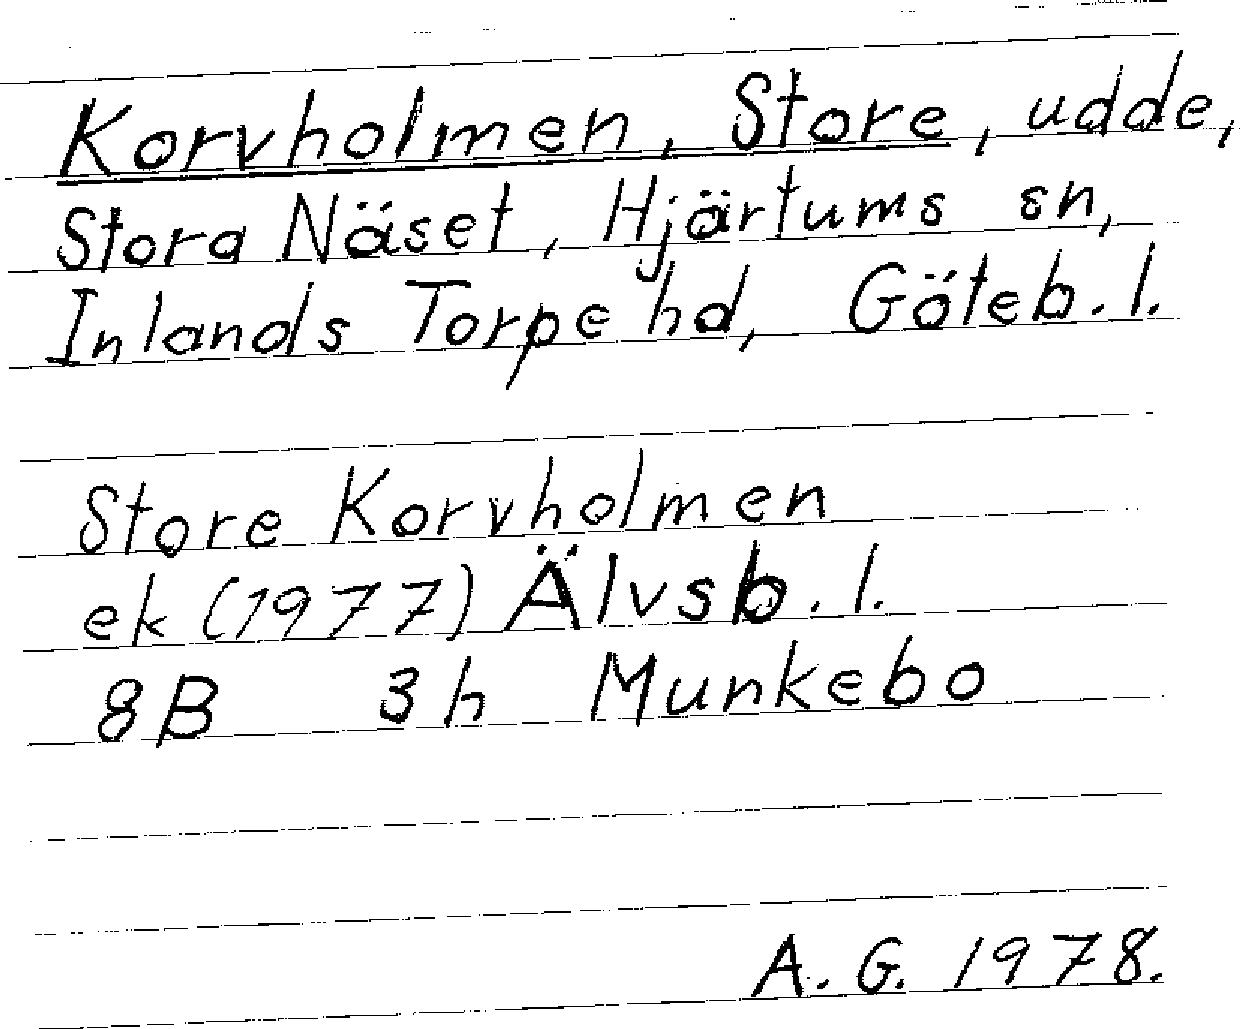 Korvholmen, Store, udde,
Stora Näset, Hjärtums sn,
Inlands Torpe hd, Göteb. l.
Store Korvholmen
ek (1977) Älvsb. l.
8B 3h Munkebo
A. G. 1978.